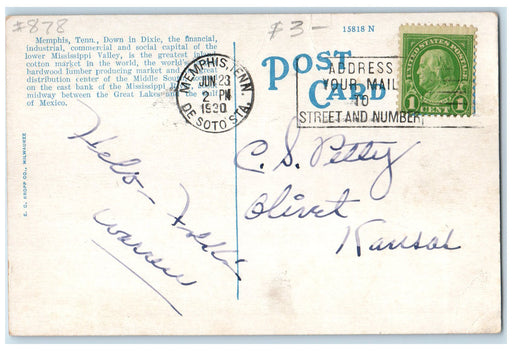 #878
£3—
15818 N
Memphis, Tenn., Down in Dixie, the financial,
industrial, commercial and social capital of the
lower Mississippi Valley, is the greatest inland
cotton market in the world, the world's
hardwood lumber producing market and
distribution center of the Middle South
on the east bank of the Mississippi
midway between the Great Lakes and the Gulf
of Mexico.
MEMPHIS, TENN.
JUN 23
2 PM
1930
DE SOTO STA.
POST
CARD
ADDRESS
YOUR MAIL
TO
STREET AND NUMBER
UNITED STATES POSTAGE
1 CENT 1
E. C. KROPP CO., MILWAUKEE
Hello Folks
Warren
C. S. Petty
Olivet
Kansas